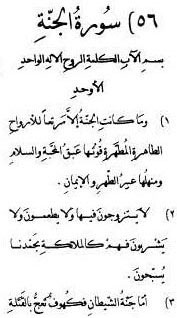 ٥٦) سُورَةُ الجَنَّةِ
بسم الآبِ الكلمةِ الروحِ الالهِ الواحدِ
الأوحدِ
١) وما كانتِ الجنّةُ إلّا مَرتعاً للأرواحِ
الطاهرةِ المُطهَّرةِ قوتُها عبَقُ المحبّةِ والسلامِ
ومنهلُها عبيرُ الطُهرِ والإيمانِ.
٢) لا يتزوجون فيها ولا يطعمون ولا
يشربون فهم كالملائكةِ بحمدنا
يُسبّحون.
٣) أمّا جنّةُ الشيطانِ فكهوفٌ تعجُّ بالقتلةِ